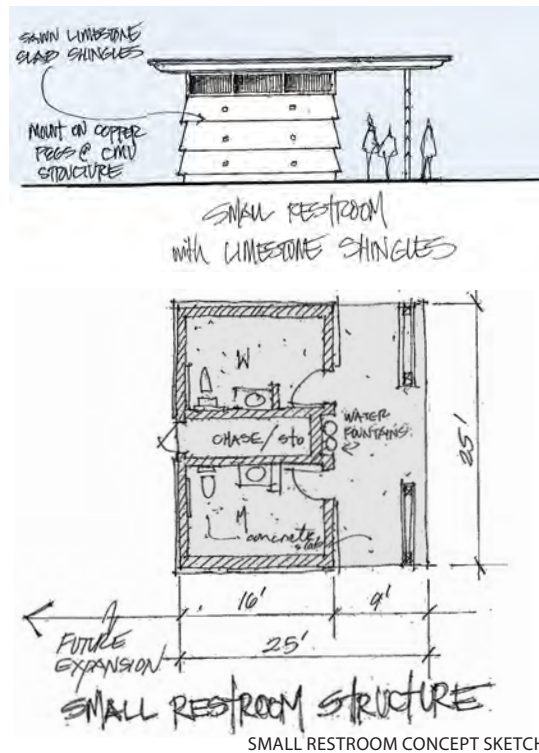 SAWN LIMESTONE
SLAB SHINGLES
MOUNT ON COPPER
PEGS @ CMU
STRUCTURE
SMALL RESTROOM
with LIMESTONE SHINGLES
W
CHASE/STO
WATER
FOUNTAINS
25'
M
concrete
slab
16'
9'
25'
FUTURE
EXPANSION
SMALL RESTROOM STRUCTURE
SMALL RESTROOM CONCEPT SKETCH